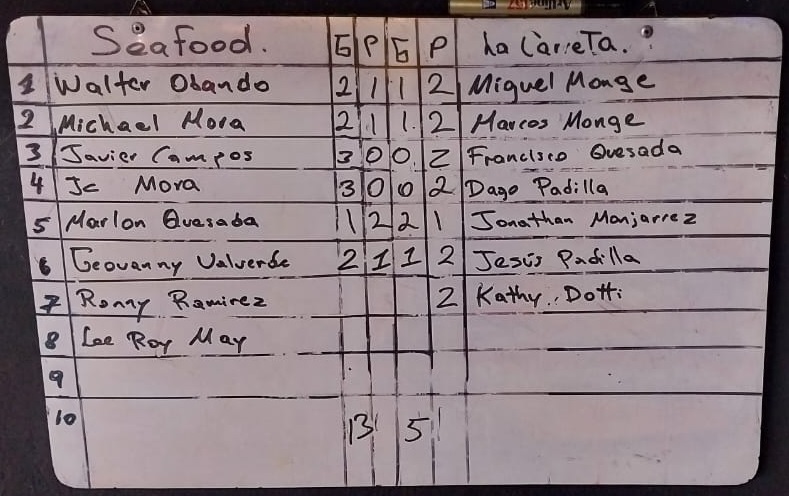 Seafood. G P G P La CarreTa.
1 Walter Obando 2 1 1 2 Miguel Monge
2 Michael Mora 2 1 1 2 Marcos Monge
3 Javier Campos 3 0 0 2 Francisco Quesada
4 Jc Mora 3 0 0 2 Dago Padilla
5 Marlon Quesada 1 2 2 1 Jonathan Manjarrez
6 Geovanny Valverde 2 1 1 2 Jesús Padilla
7 Ronny Ramirez 2 Kathy Dotti
8 Lee Roy May
9
10 13 5